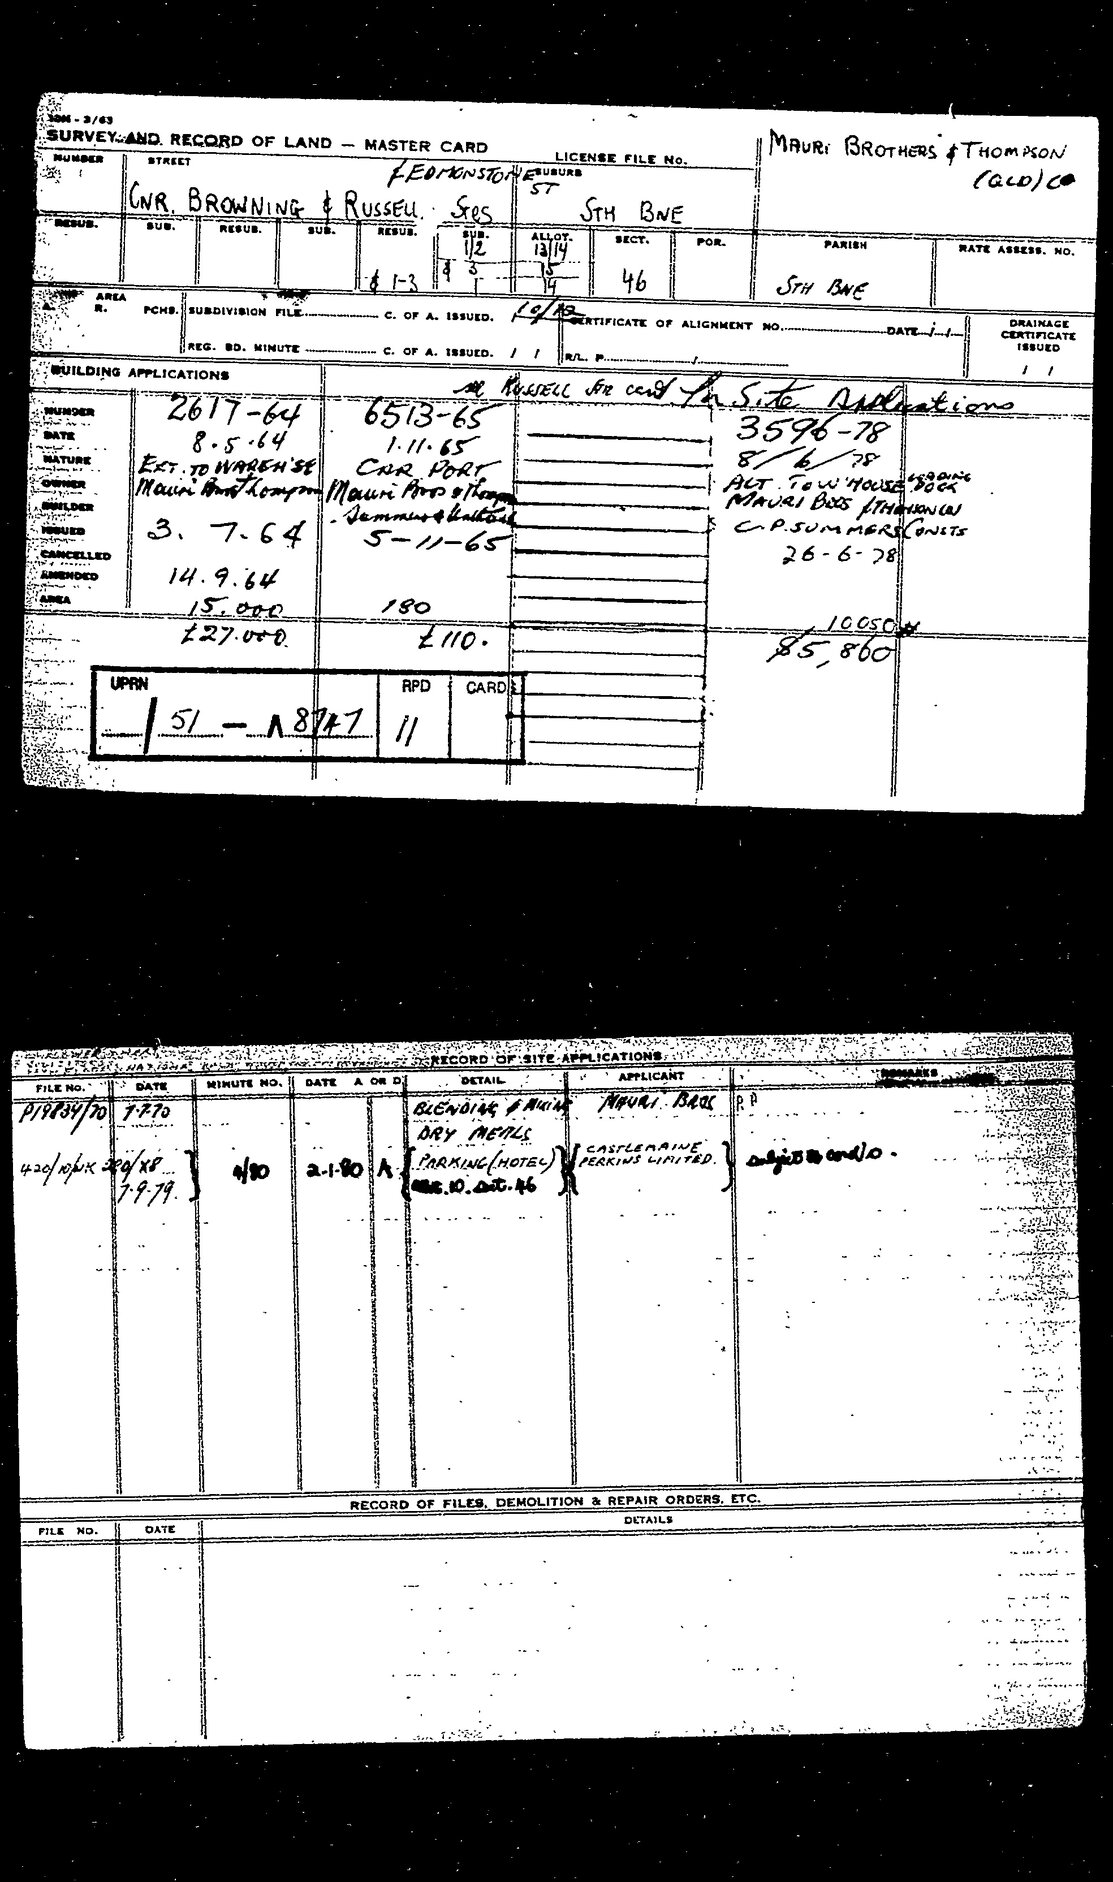 30M - 3/63
SURVEY AND RECORD OF LAND — MASTER CARD
LICENSE FILE No.
MAURI BROTHERS & THOMPSON
(QLD) Co
NUMBER STREET SUBURB
& EDMONSTONE ST
CNR. BROWNING & RUSSELL. Sts STH BNE
RESUB. SUB. RESUB. SUB. RESUB. SUB. ALLOT. SECT. POR. PARISH RATE ASSESS. NO.
1/2 13/14
& 3 15
& 1-3 1 14 46 STH BNE
AREA
A. R. PCHS. SUBDIVISION FILE C. OF A. ISSUED. CERTIFICATE OF ALIGNMENT NO. DATE / / DRAINAGE CERTIFICATE ISSUED
REG. BD. MINUTE C. OF A. ISSUED. / / R/L. P. / / /
BUILDING APPLICATIONS
RUSSELL STR card for Site Applications
NUMBER 2617-64 6513-65 3596-78
DATE 8.5.64 1.11.65 8/6/78
NATURE EXT. TO WAREH'SE CAR PORT ALT. TO W'HOUSE LOADING DOCK
OWNER Mauri Bros Thompson Mauri Bros & Thompson MAURI BROS & THOMSON
BUILDER Summers & C.P. SUMMERS CONSTS
ISSUED 3. 7.64 5-11-65 26-6-78
CANCELLED
AMENDED 14.9.64
AREA 15.000 180 10050
£27.000. £110. $5,860
UPRN RPD CARD
/ 51 — 11
RECORD OF SITE APPLICATIONS
FILE NO. DATE MINUTE NO. DATE A OR D. DETAIL APPLICANT REMARKS
P19834/70 7.7.70 BLENDING & MIXING MAURI BROS R P
DRY MEALS
4/80 2.1.80 A. PARKING (HOTEL) CASTLEMAINE
PERKINS LIMITED. subject to cond/o.
7.9.79. 10. Sect. 46
RECORD OF FILES, DEMOLITION & REPAIR ORDERS, ETC.
FILE NO. DATE DETAILS